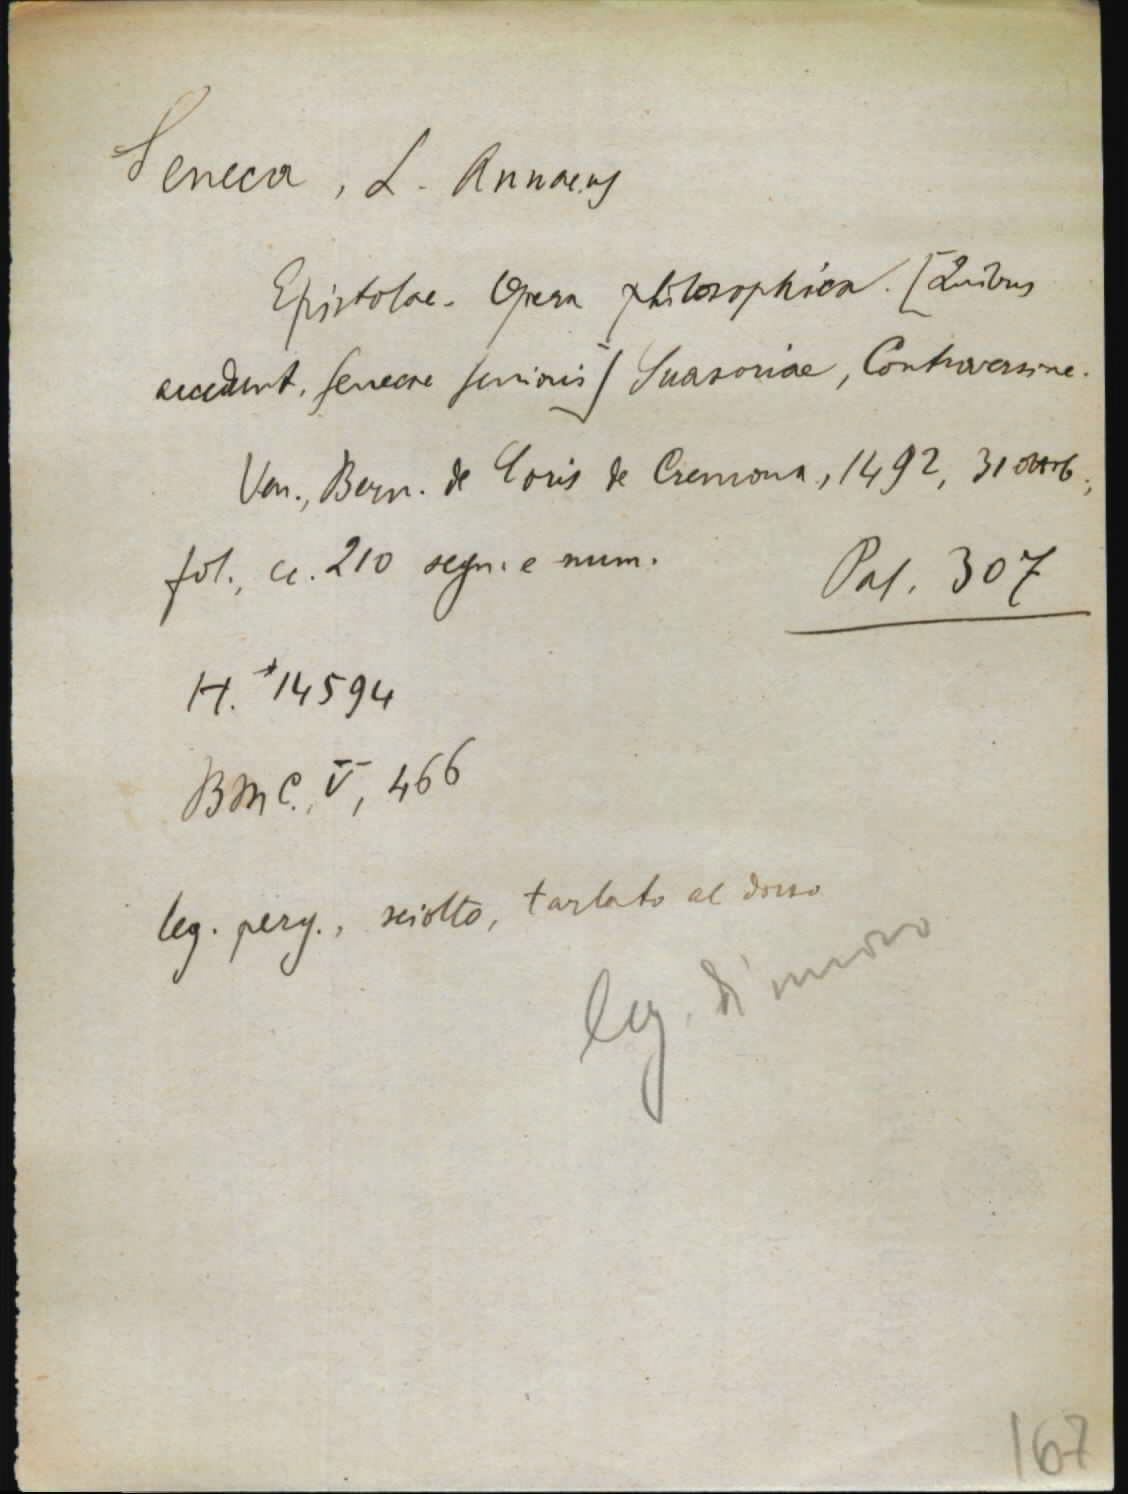 Seneca, L. Annaeus
Epistolae. Opera philosophica. [Quibus
accedunt, Senecae senioris] Suasoriae, Controversiae.
Ven., Bern. de Coris de Cremona, 1492, 31 ottob.;
fol., cc. 210 segn. e num.
Pal. 307
H. *14594
BMC., V, 466
leg. perg., sciolto, tarlato al dorso
leg. di nuovo
167